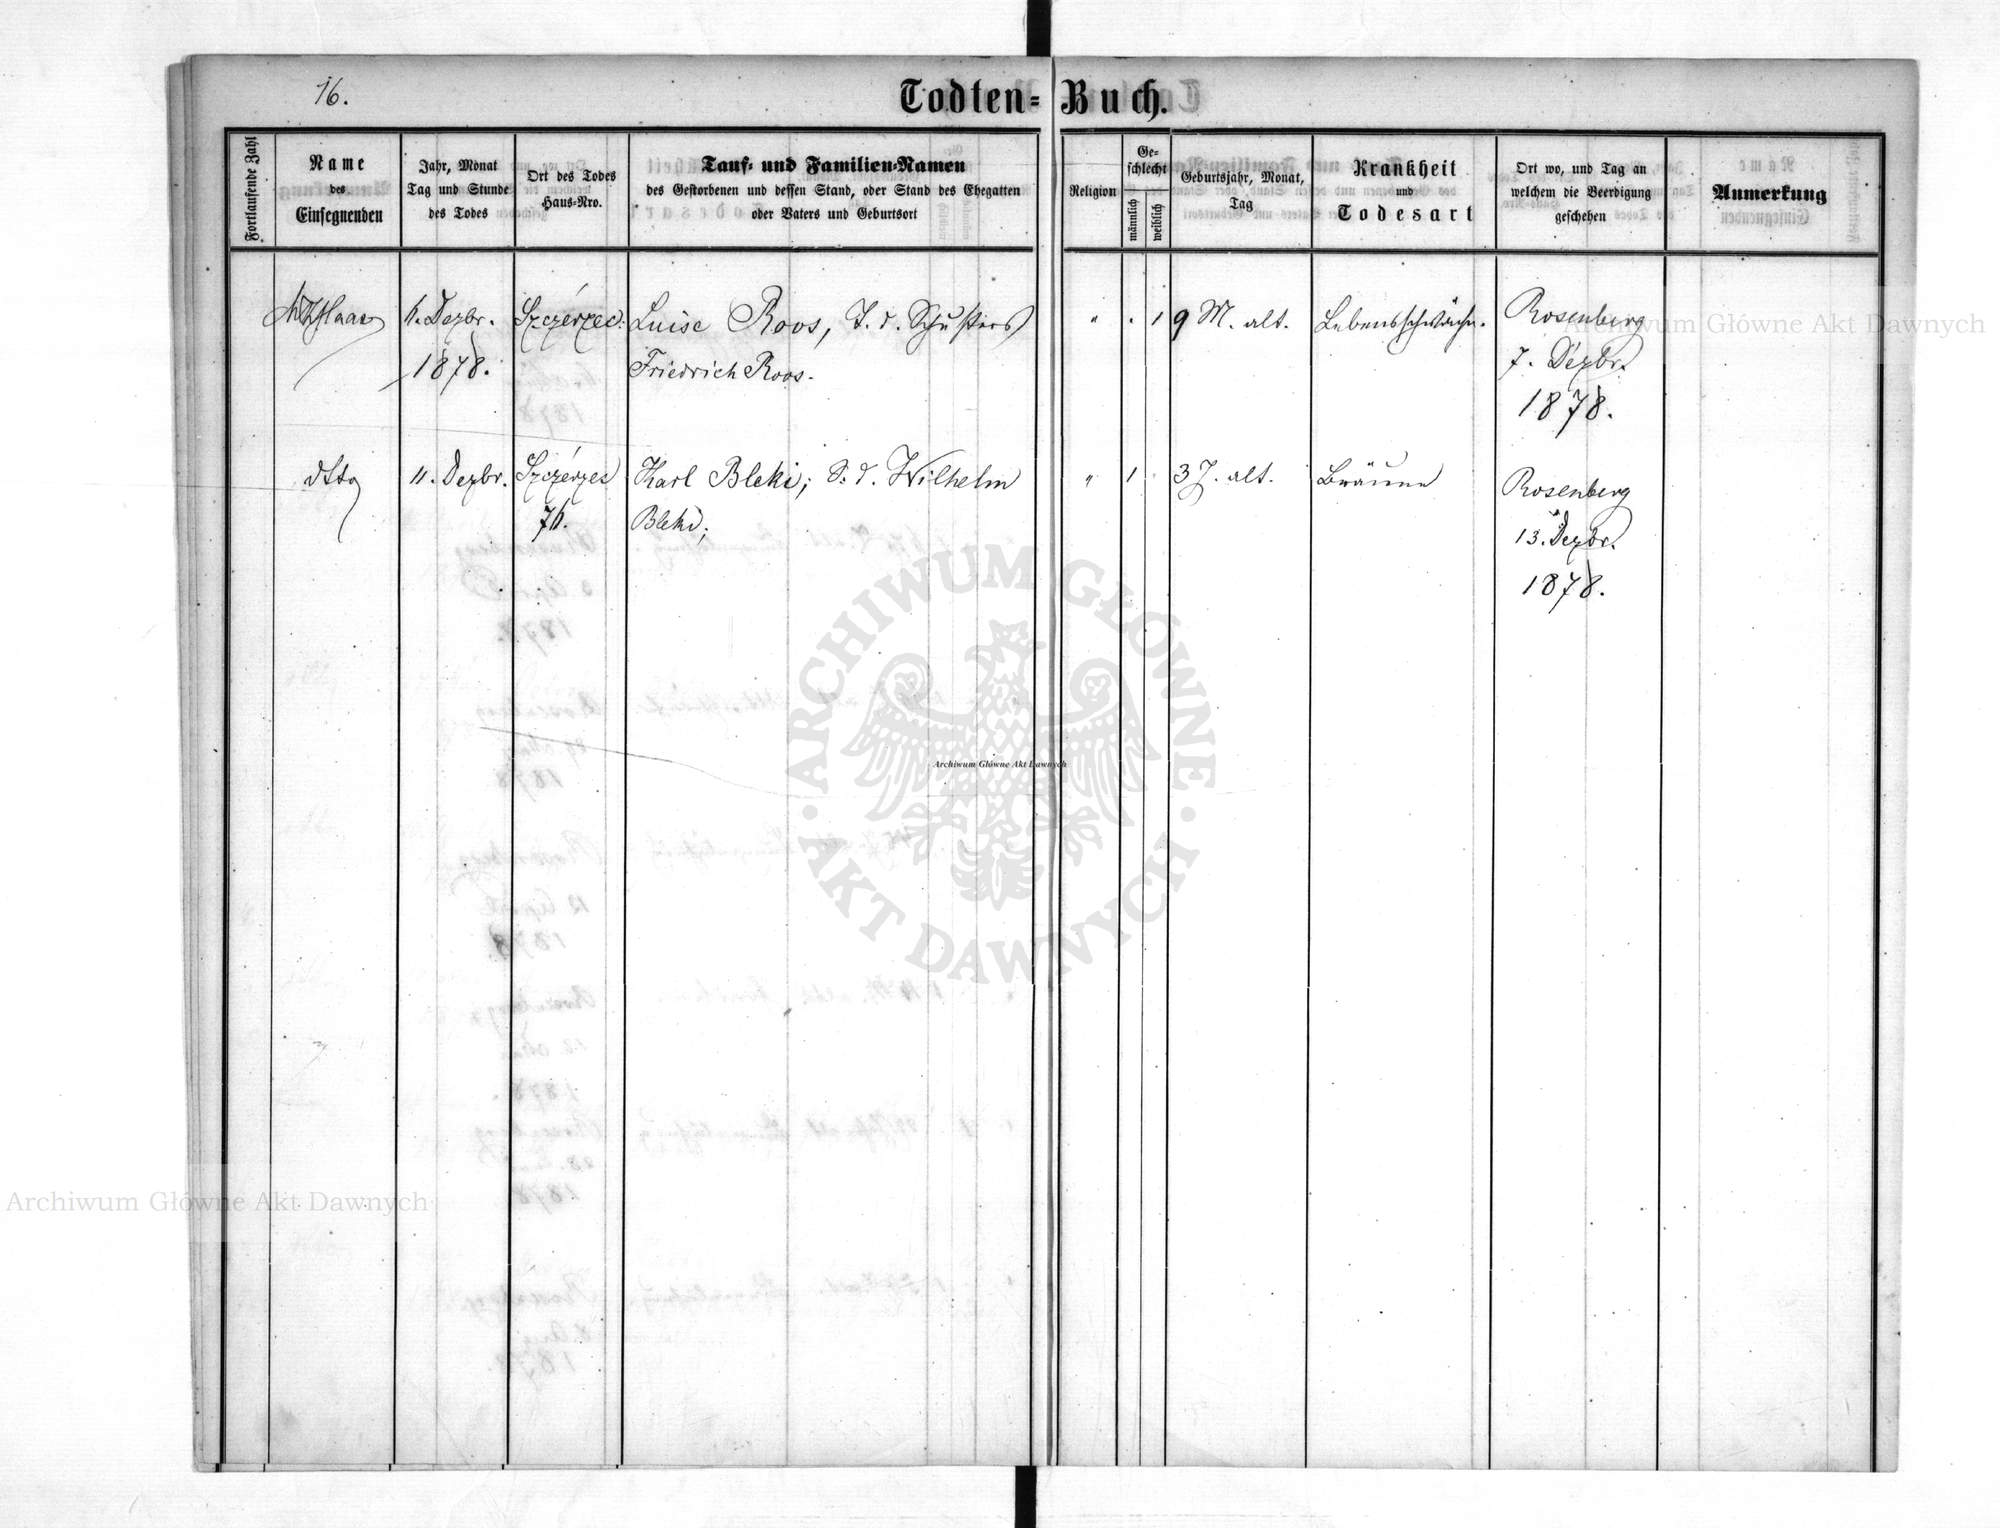 16.
Todten-Buch.
Fortlaufende Zahl
Name
des
Einsegnenden
Jahr, Monat
Tag und Stunde
des Todes
Ort des Todes
Haus-Nro.
Tauf- und Familien-Namen
des Gestorbenen und dessen Stand, oder Stand des Ehegatten
oder Vaters und Geburtsort
Religion
Ge-
schlecht
männlich
weiblich
Geburtsjahr, Monat,
Tag
Krankheit
und
Todesart
Ort wo, und Tag an
welchem die Beerdigung
geschehen
Anmerkung
Haas 6. Dezbr. Szczérzec: Luise Roos, T. d. Schusters " . 1 9 M. alt. Lebensschwäche. Rosenberg
1878. Friedrich Roos. 7. Dezbr.
1878.
dtto 11. Dezbr. Szczérzec Karl Bleki; S. d. Wilhelm " 1 . 3 J. alt. Bräune Rosenberg
76. Bleki; 13. Dezbr.
1878.
Archiwum Główne Akt Dawnych
ARCHIWUM GŁÓWNE
AKT DAWNYCH
Archiwum Główne Akt Dawnych
Archiwum Główne Akt Dawnych